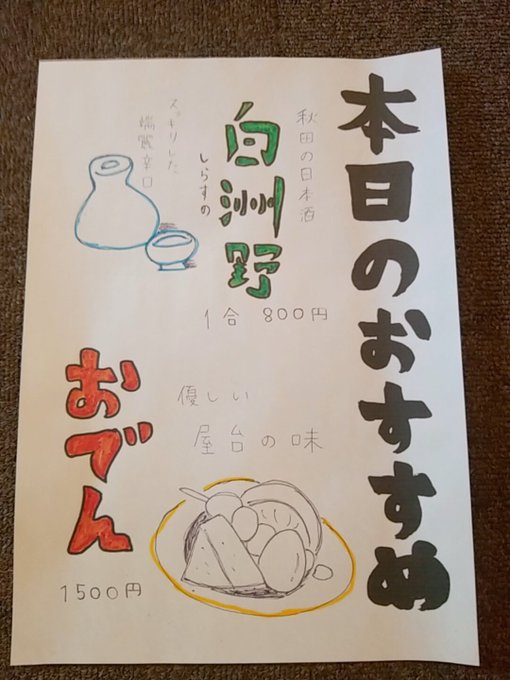 本日のおすすめ
秋田の日本酒
白洲野
しらすの
スッキリした
端麗辛口
1合 800円
おでん
優しい
屋台の味
1500円